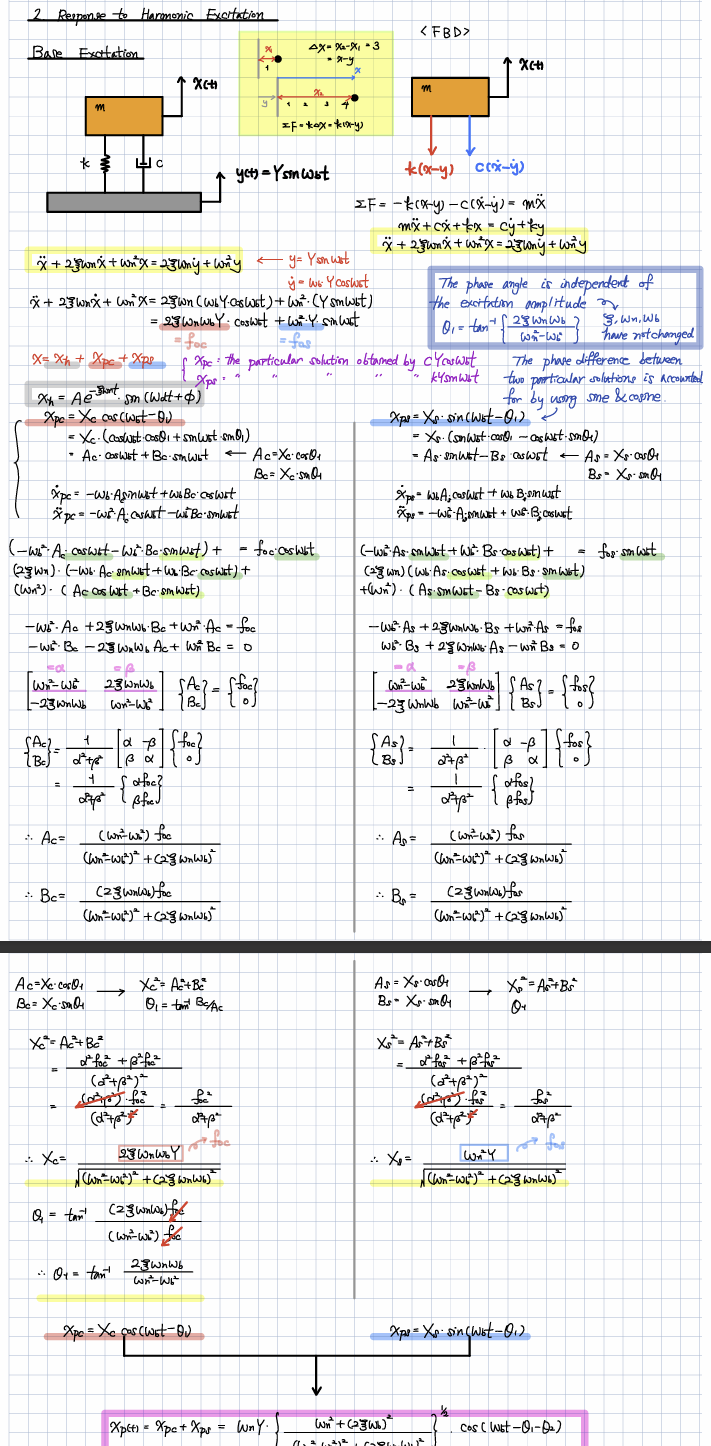 2. Response to Harmonic Excitation
Base Excitation
m
x(t)
k
c
y(t) = Y sin ωbt
x₁
1
Δx = x₂-x₁ = 3
= x-y
x
y
x₂
1 2 3 4
ΣF = kΔx = k(x-y)
<FBD>
m
x(t)
k(x-y)
c(ẋ-ẏ)
ΣF = -k(x-y) - c(ẋ-ẏ) = mẍ
mẍ + cẋ + kx = cẏ + ky
ẍ + 2ξωnẋ + ωn²x = 2ξωnẏ + ωn²y
ẍ + 2ξωnẋ + ωn²x = 2ξωnẏ + ωn²y ← y = Y sin ωbt
ẏ = ωb Y cos ωbt
ẍ + 2ξωnẋ + ωn²x = 2ξωn(ωb Y·cosωbt) + ωn²·(Y sinωbt)
= 2ξωnωbY·cosωbt + ωn²·Y·sinωbt
= foc
= fos
The phase angle is independent of
the excitation amplitude
θ₁ = tan⁻¹ { 2ξωnωb / ωn²-ωb² }
ξ, ωn, ωb
have not changed
x = xh + xpc + xps
xpc : the particular solution obtained by cYcosωbt
xps = " " " " " kYsinωbt
The phase difference between
two particular solutions is accounted
for by using sine & cosine.
xh = Ae^-ξωnt · sin(ωdt+ϕ)
xpc = Xc cos(ωbt-θ₁)
= Xc·(cosωbt·cosθ₁ + sinωbt·sinθ₁)
= Ac·cosωbt + Bc·sinωbt ← Ac = Xc·cosθ₁
Bc = Xc·sinθ₁
ẋpc = -ωb·Ac sinωbt + ωb Bc·cosωbt
ẍpc = -ωb²·Ac cosωbt - ωb² Bc·sinωbt
(-ωb²·Ac·cosωbt - ωb²·Bc·sinωbt) + = foc·cosωbt
(2ξωn)·(-ωb·Ac sinωbt + ωb·Bc·cosωbt) +
(ωn²)·(Ac cosωbt + Bc·sinωbt)
-ωb²·Ac + 2ξωnωb·Bc + ωn²·Ac = foc
-ωb²·Bc - 2ξωnωb Ac + ωn² Bc = 0
= α = β
[ ωn²-ωb² 2ξωnωb ] {Ac} = {foc}
[ -2ξωnωb ωn²-ωb² ] {Bc} {0}
{Ac} = 1 / α²+β² [ α -β ] {foc}
{Bc} [ β α ] {0}
= 1 / α²+β² { αfoc }
{ βfoc }
∴ Ac = (ωn²-ωb²) foc / (ωn²-ωb²)² + (2ξωnωb)²
∴ Bc = (2ξωnωb) foc / (ωn²-ωb²)² + (2ξωnωb)²
xps = Xs·sin(ωbt-θ₁)
= Xs·(sinωbt·cosθ₁ - cosωbt·sinθ₁)
= As·sinωbt - Bs·cosωbt ← As = Xs·cosθ₁
Bs = Xs·sinθ₁
ẋps = ωb As cosωbt + ωb Bs sinωbt
ẍps = -ωb²·As sinωbt + ωb² Bs cosωbt
(-ωb²·As·sinωbt + ωb²·Bs·cosωbt) + = fos·sinωbt
(2ξωn)(ωb·As·cosωbt + ωb·Bs·sinωbt)
+(ωn²)·(As·sinωbt - Bs·cosωbt)
-ωb²·As + 2ξωnωb·Bs + ωn²·As = fos
ωb²·Bs + 2ξωnωb·As - ωn² Bs = 0
= α = β
[ ωn²-ωb² 2ξωnωb ] {As} = {fos}
[ -2ξωnωb ωn²-ωb² ] {Bs} {0}
{As} = 1 / α²+β² · [ α -β ] {fos}
{Bs} [ β α ] {0}
= 1 / α²+β² { αfos }
{ βfos }
∴ As = (ωn²-ωb²) fos / (ωn²-ωb²)² + (2ξωnωb)²
∴ Bs = (2ξωnωb) fos / (ωn²-ωb²)² + (2ξωnωb)²
Ac = Xc·cosθ₁ → Xc² = Ac²+Bc²
Bc = Xc·sinθ₁ θ₁ = tan⁻¹ Bc/Ac
Xc² = Ac²+Bc²
= α²foc² + β²foc² / (α²+β²)²
= (α²+β²)·foc² / (α²+β²)² = foc² / α²+β²
∴ Xc = 2ξωnωbY / √(ωn²-ωb²)² + (2ξωnωb)²
foc
θ₁ = tan⁻¹ (2ξωnωb) foc / (ωn²-ωb²) foc
∴ θ₁ = tan⁻¹ 2ξωnωb / ωn²-ωb²
As = Xs·cosθ₁ → Xs² = As²+Bs²
Bs = Xs·sinθ₁ θ₁
Xs² = As²+Bs²
= α²fos² + β²fos² / (α²+β²)²
= (α²+β²)·fos² / (α²+β²)² = fos² / α²+β²
∴ Xs = ωn²Y / √(ωn²-ωb²)² + (2ξωnωb)²
fos
xpc = Xc cos(ωbt-θ₁)
xps = Xs·sin(ωbt-θ₁)
xp(t) = xpc + xps = ωnY · { ωn² + (2ξωb)² / (ωn²-ωb²)² + (2ξωnωb)² }^1/2 · cos(ωbt-θ₁-θ₂)